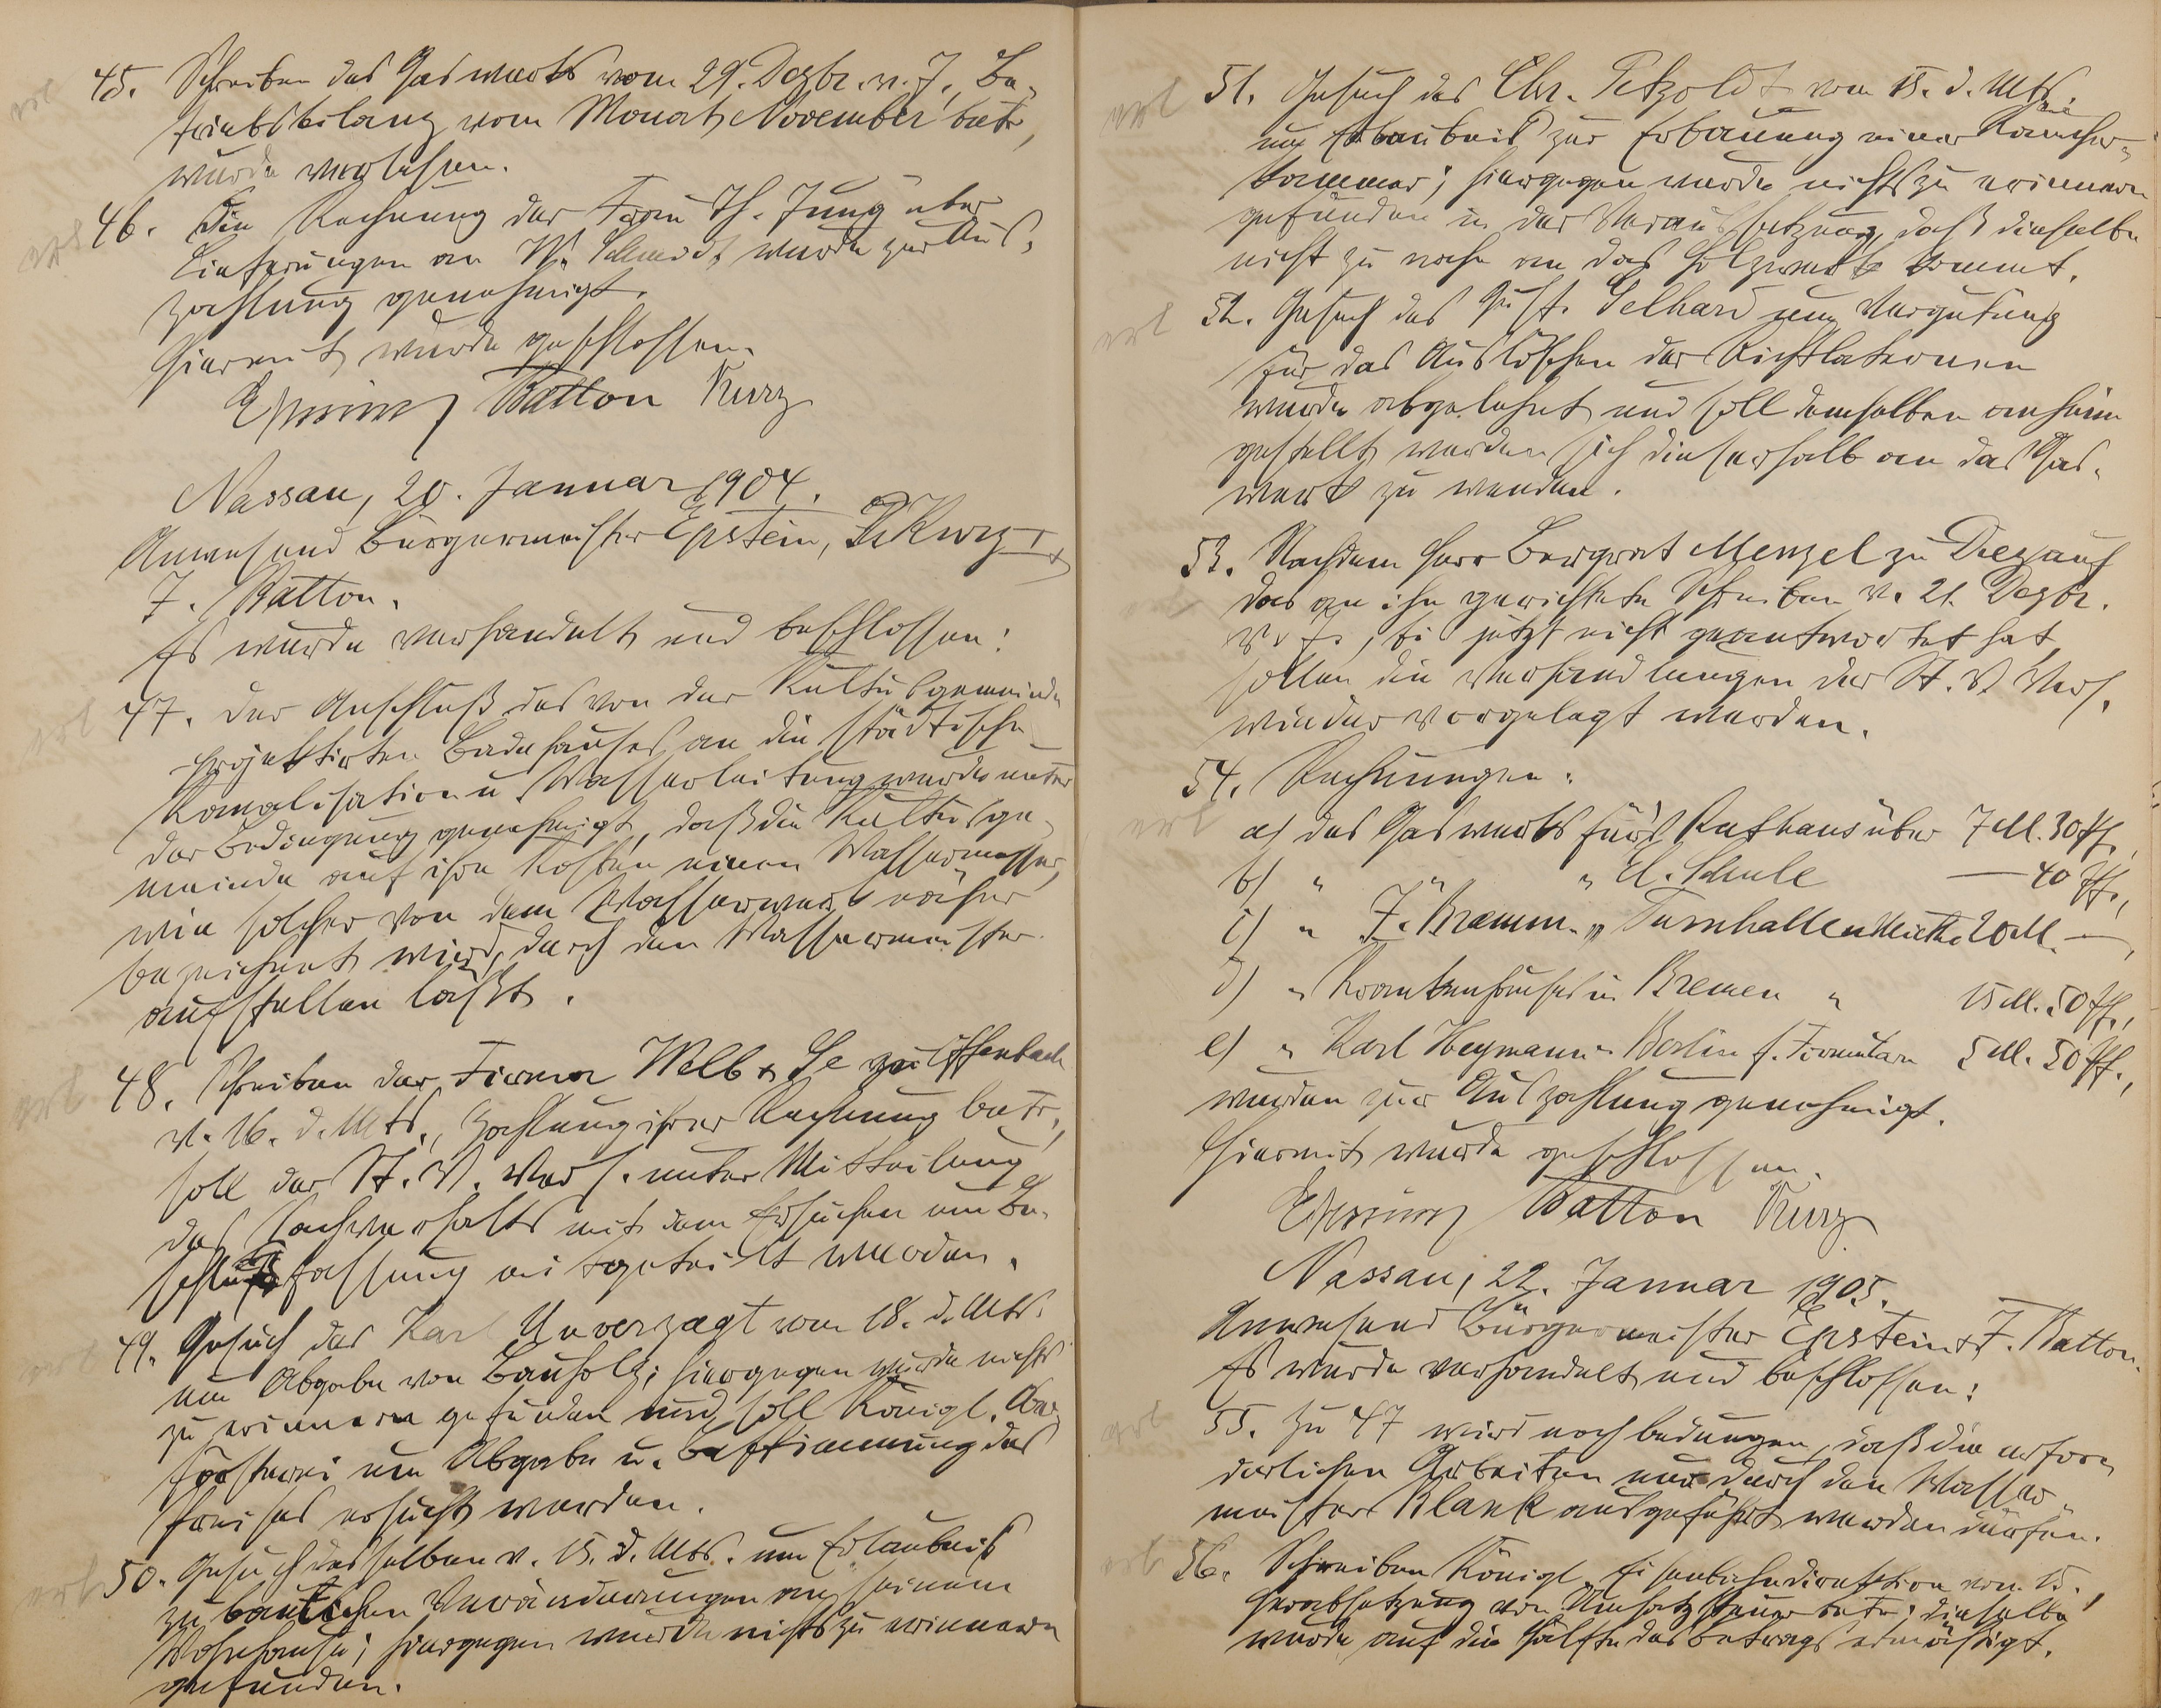 erl
45. Schreiben des Gaswerks vom 29. Dezbr. v. J., Be-
triebsbilanz vom Monat November betr.,
wurde verlesen.
erl
46. Die Rechnung der Frau Th. Jung über
Lieferungen an W. Schmidt wurde zur Aus-
zahlung genehmigt.
Hiermit wurde geschlossen.
Epstein Batton Kurz
Nassau, 20. Januar 1904.
Anwesend Bürgermeister Epstein, Kurz
J. Batton.
Es wurde verhandelt und beschlossen:
erl
47. Der Anschluß des von der Kultusgemeinde
projektirten Badehauses an die städtische
Kanalisation u. Wasserleitung wurde unter
der Bedingung genehmigt, daß die Kultusge-
meinde auf ihre Kosten einen Wassermesser,
wie solcher von dem Wasserwerk näher
bezeichnet wird, durch den Wassermeister
aufstellen läßt.
erl
48. Schreiben der Firma Welb & Se zu Offenbach
v. 16. d. Mts., Zahlung ihrer Rechnung betr.,
soll der St. V. Vers. unter Mitteilung
des Sachverhalts mit dem Ersuchen um Be-
schlußfassung mitgeteilt werden.
erl
49. Gesuch des Karl Unverzagt vom 18. d. Mts.
um Abgabe von Bauholz; hiergegen wurde nichts
zu erinnern gefunden und soll Königl. Ober-
försterei um Abgabe u. Bestimmung des
Preises ersucht werden.
erl
50. Gesuch desselben v. 15. d. Mts. um Erlaubniß
zu baulichen Veränderungen an seinem
Wohnhause; hiergegen wurde nichts zu erinnern
gefunden.
erl
51. Gesuch des Chr. Petzoldt vom 15. d. Mts.
um Erlaubniß zur Erbauung einer Räucher-
kammer; hiergegen wurde nichts zu erinnern
gefunden in der Voraussetzung, daß dieselbe
nicht zu nahe an das Holzwerk kommt.
erl
52. Gesuch des Gust. Gelhard um Vergütung
für das Auslöschen der Richtlaternen
wurde abgelehnt und soll demselben anheim
gestellt werden sich dieserhalb an das Gas-
werk zu wenden.
53. Nachdem Herr Bergrat Menzel zu Diez auf
das an ihn gerichtete Schreiben v. 21. Dezbr.
v. Js., bis jetzt nicht geantwortet hat,
sollen die Verhandlungen der St. V. Vers.
wieder vorgelegt werden.
54. Rechnungen:
erl
a) des Gaswerks für's Rathaus über 7 M. 30 Pf.,
b) " " El. Schule — 40 Pf.,
c) " J. Bramm. " Turnhallen Miethe 20 M. —,
d) " Krankenhauses in Bremen " 15 M. 50 Pf.,
e) " Karl Heymann Berlin f. Formulare 5 M. 50 Pf.,
wurden zur Auszahlung genehmigt.
Hiermit wurde geschlossen.
Epstein Batton Kurz
Nassau, 22. Januar 1905.
Anwesend Bürgermeister Epstein & J. Batton.
Es wurde verhandelt und beschlossen:
erl
55. Zu 47 wird noch bedungen, daß die erfor-
derlichen Arbeiten nur durch den Wasser-
meister Blank ausgeführt werden dürfen.
erl
56. Schreiben Königl. Eisenbahndirektion vom 15.,
Herabsetzung der Umsatzsteuer betr.; dieselbe
wurde auf die Hälfte des Betrags ermäßigt.